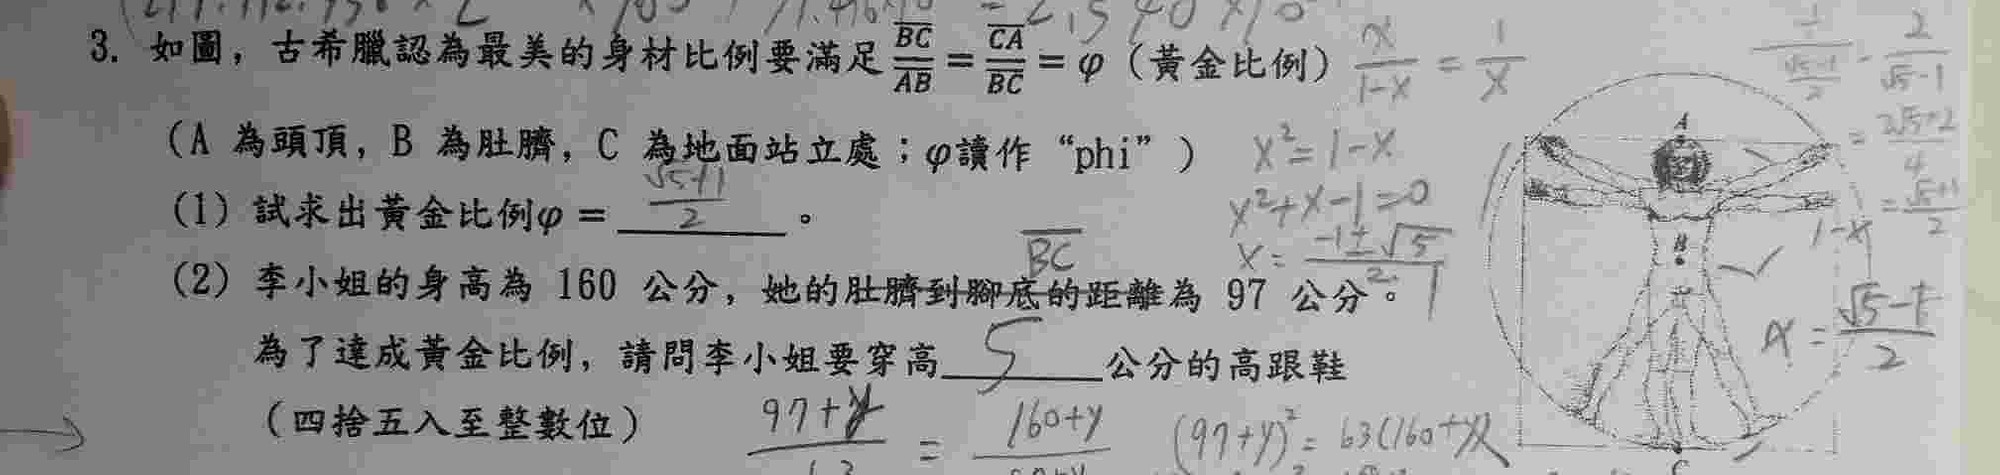 3. 如圖，古希臘認為最美的身材比例要滿足 BC/AB = CA/BC = φ（黃金比例）
x/1-x = 1/x
（A 為頭頂，B 為肚臍，C 為地面站立處；φ讀作“phi”）
x²=1-x
x²+x-1=0
x = -1±√5/2
(1) 試求出黃金比例φ = √5+1/2 。
BC
(2) 李小姐的身高為 160 公分，她的肚臍到腳底的距離為 97 公分。
為了達成黃金比例，請問李小姐要穿高 5 公分的高跟鞋
（四捨五入至整數位）
97+y = 160+y
(97+y)² = 63(160+y)
A
B
C
1
1-x
x = √5-1/2
1/√5-1/2 = 2/√5-1
= 2√5+2/4
= √5+1/2